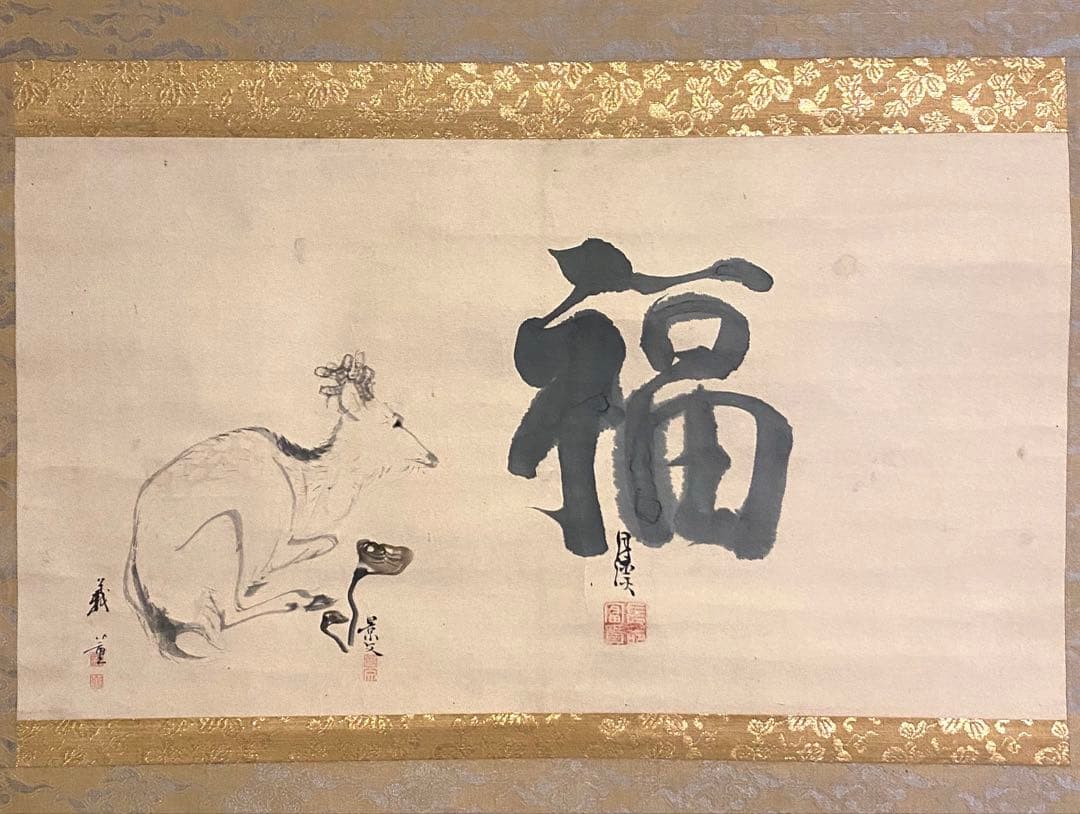 福
月溪
景文
義董